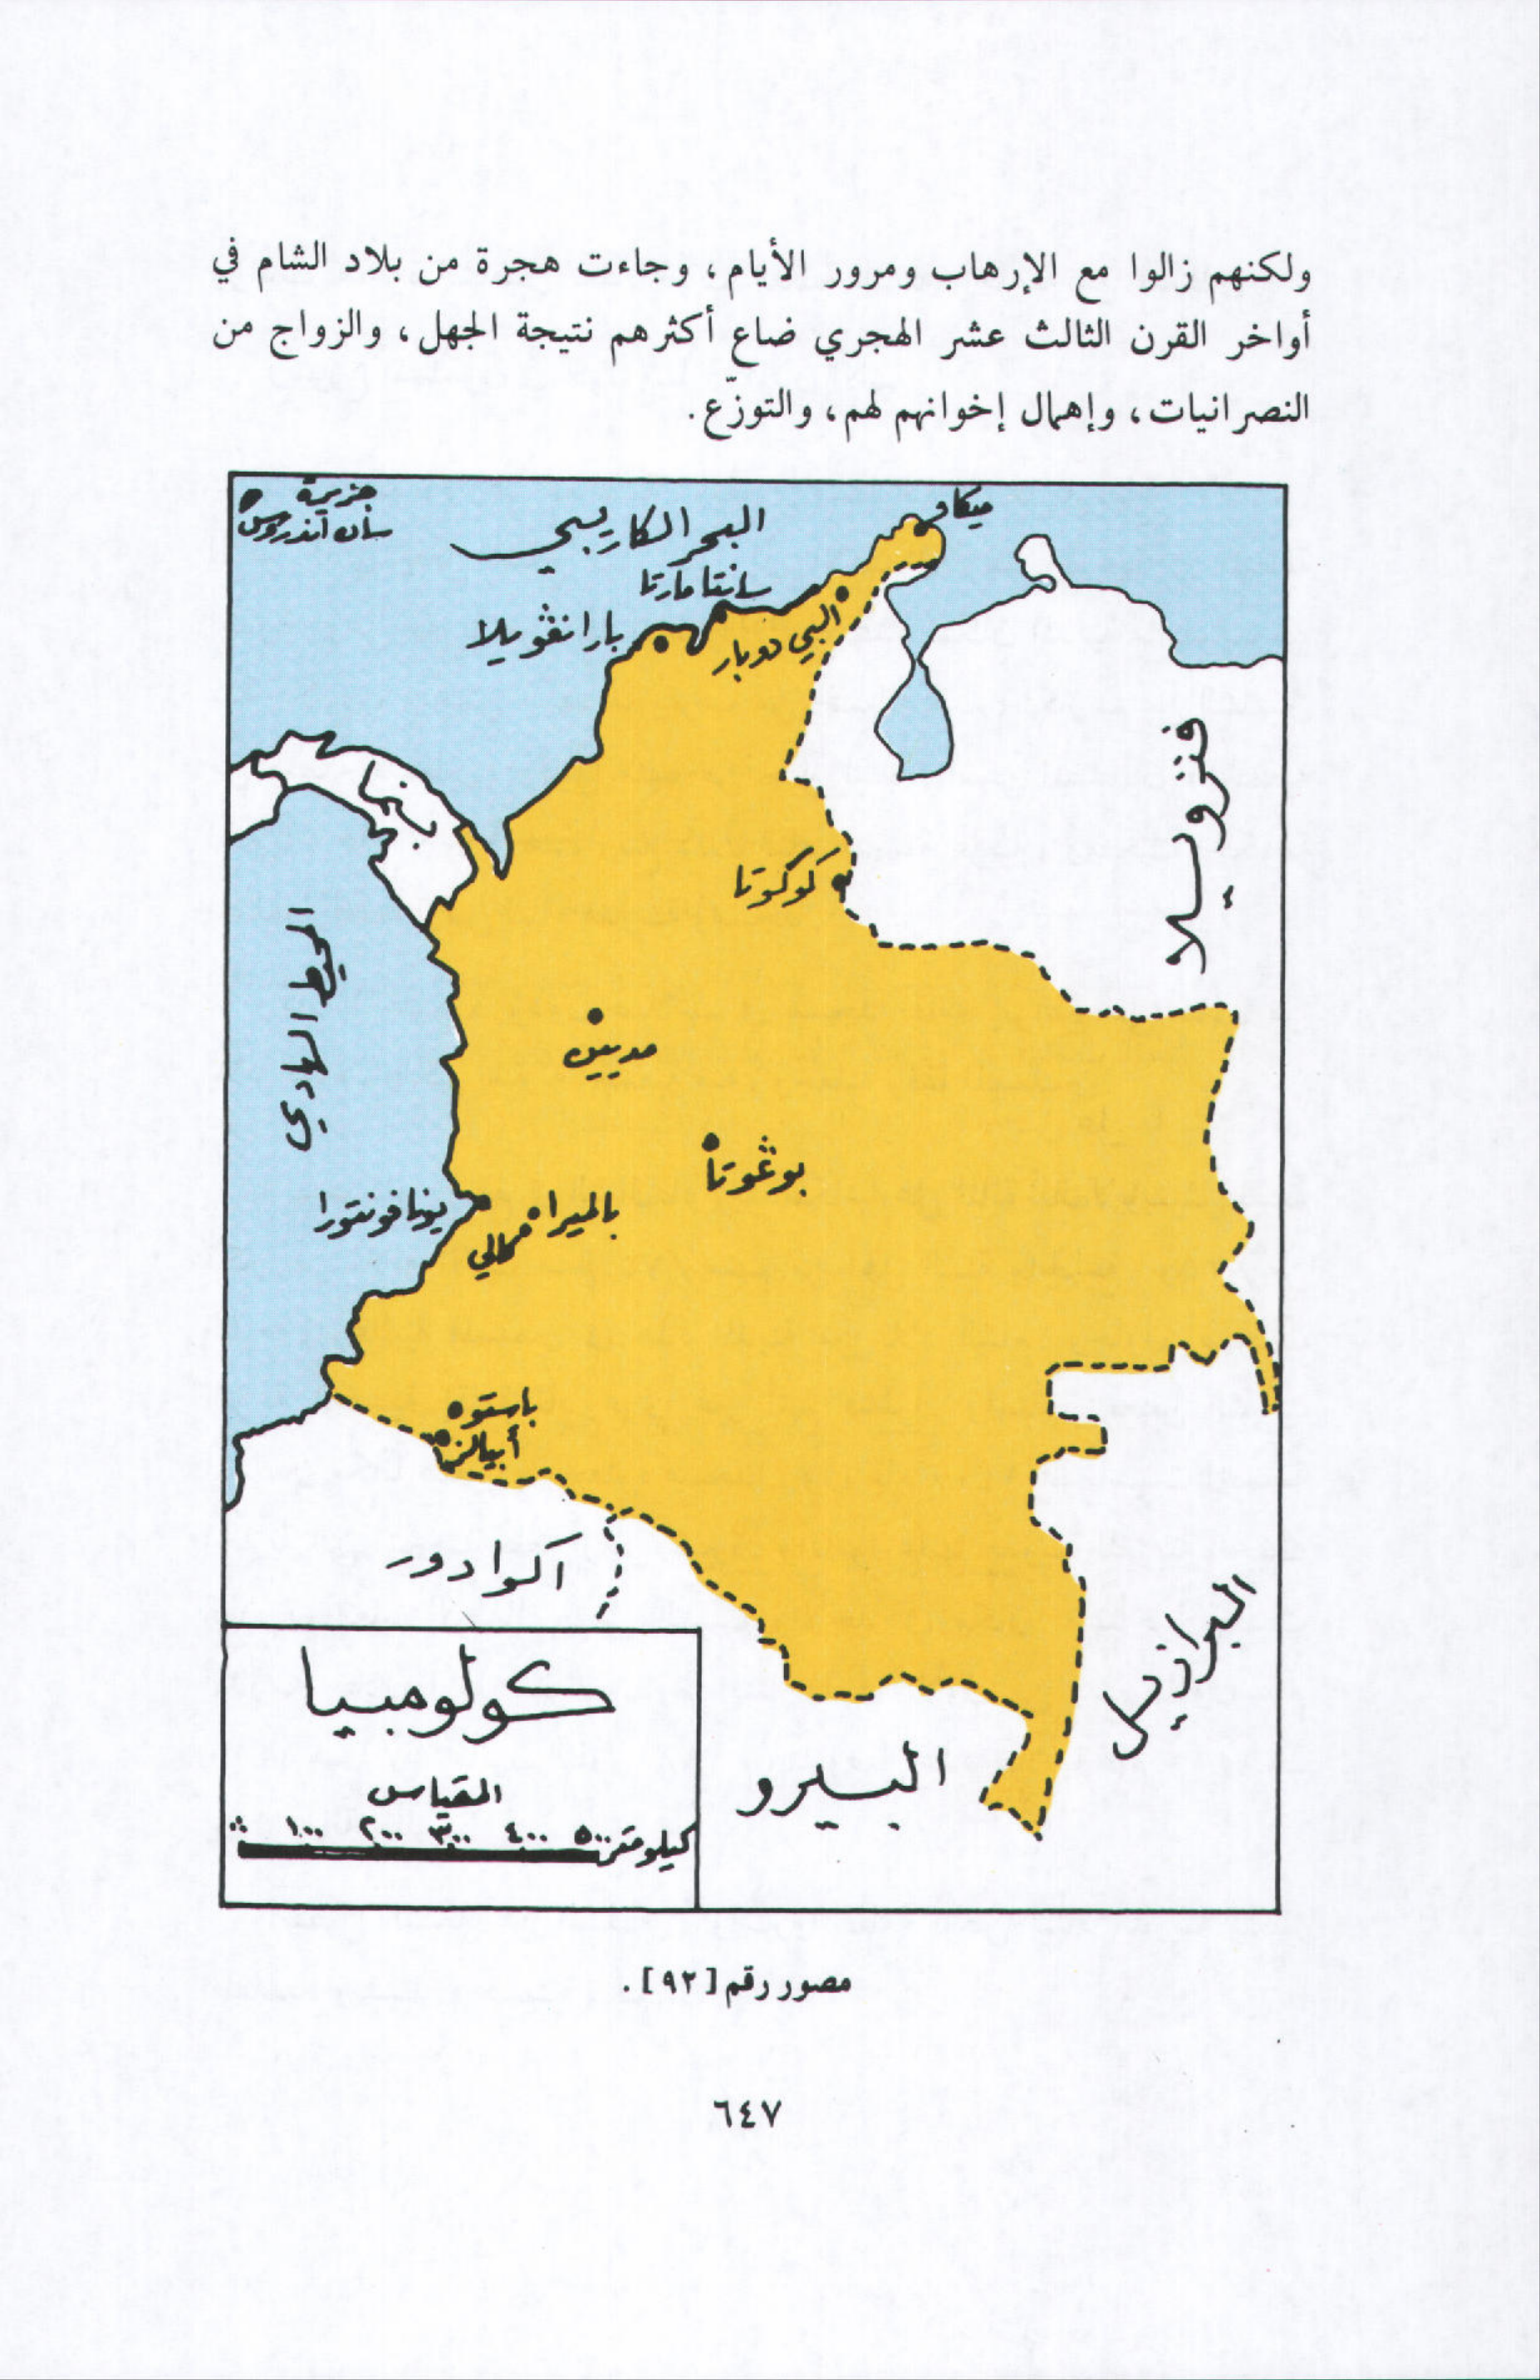 ولكنهم زالوا مع الإرهاب ومرور الأيام، وجاءت هجرة من بلاد الشام في
أواخر القرن الثالث عشر الهجري ضاع أكثرهم نتيجة الجهل، والزواج من
النصرانيات، وإهمال إخوانهم لهم، والتوزّع.
جزيرة
سان اندروس
ميكاو
البحر الكاريبي
سانتا مارتا
بارانڨويلا
البي دوبار
فنزويلا
بنما
كوكوتا
المحيط الهادي
مديين
بوڠوتا
يونافونتورا
بالميرا
كالي
باستو
أبيالز
اكوادور
البرازيل
البيرو
كولومبيا
المقياس
١٠٠ ٢٠٠ ٣٠٠ ٤٠٠ ٥٠٠ كيلومتر
مصور رقم [٩٢].
٦٤٧